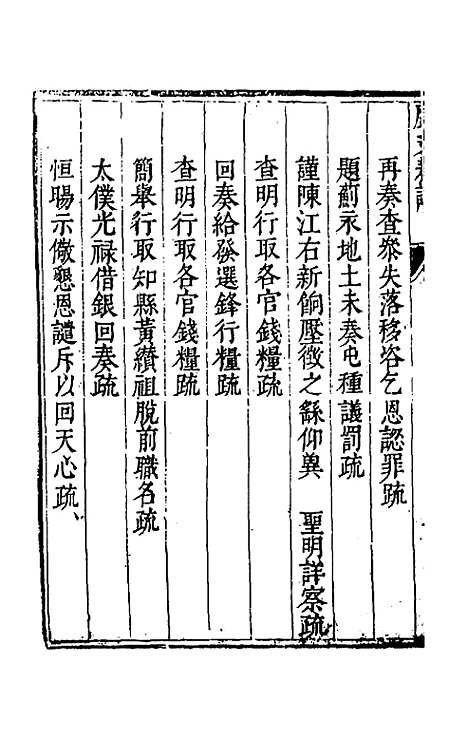 再奏查叅失落移咨乞恩認罪疏
題薊永地土未奏屯種議罰疏
謹陳江右新餉壓徵之繇仰兾 聖明詳察疏
查明行取各官錢糧疏
回奏給發選鋒行糧疏
查明行取各官錢糧疏
簡舉行取知縣黃纘祖脫前職名疏
太僕光祿借銀回奏疏
恒暘示儆懇恩譴斥以回天心疏